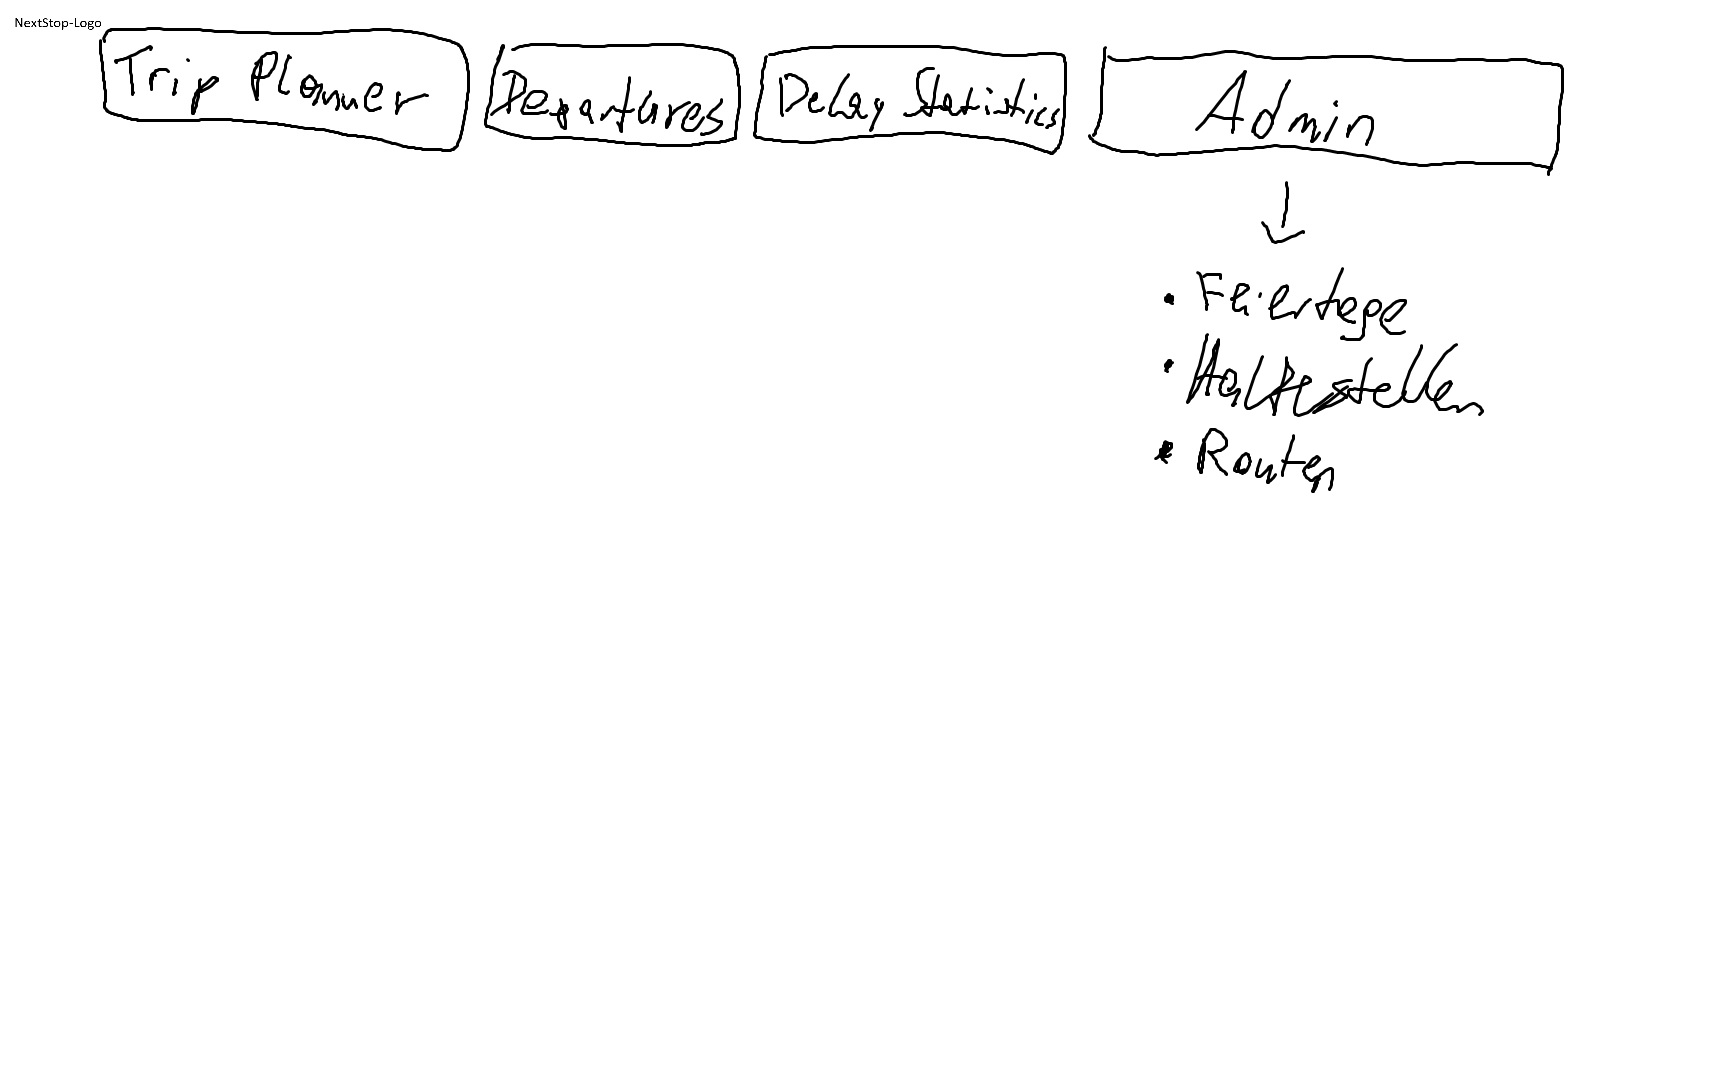 NextStop-Logo
Trip Planner
Departures
Delay Statistics
Admin
• Feiertage
• Haltestellen
• Routen